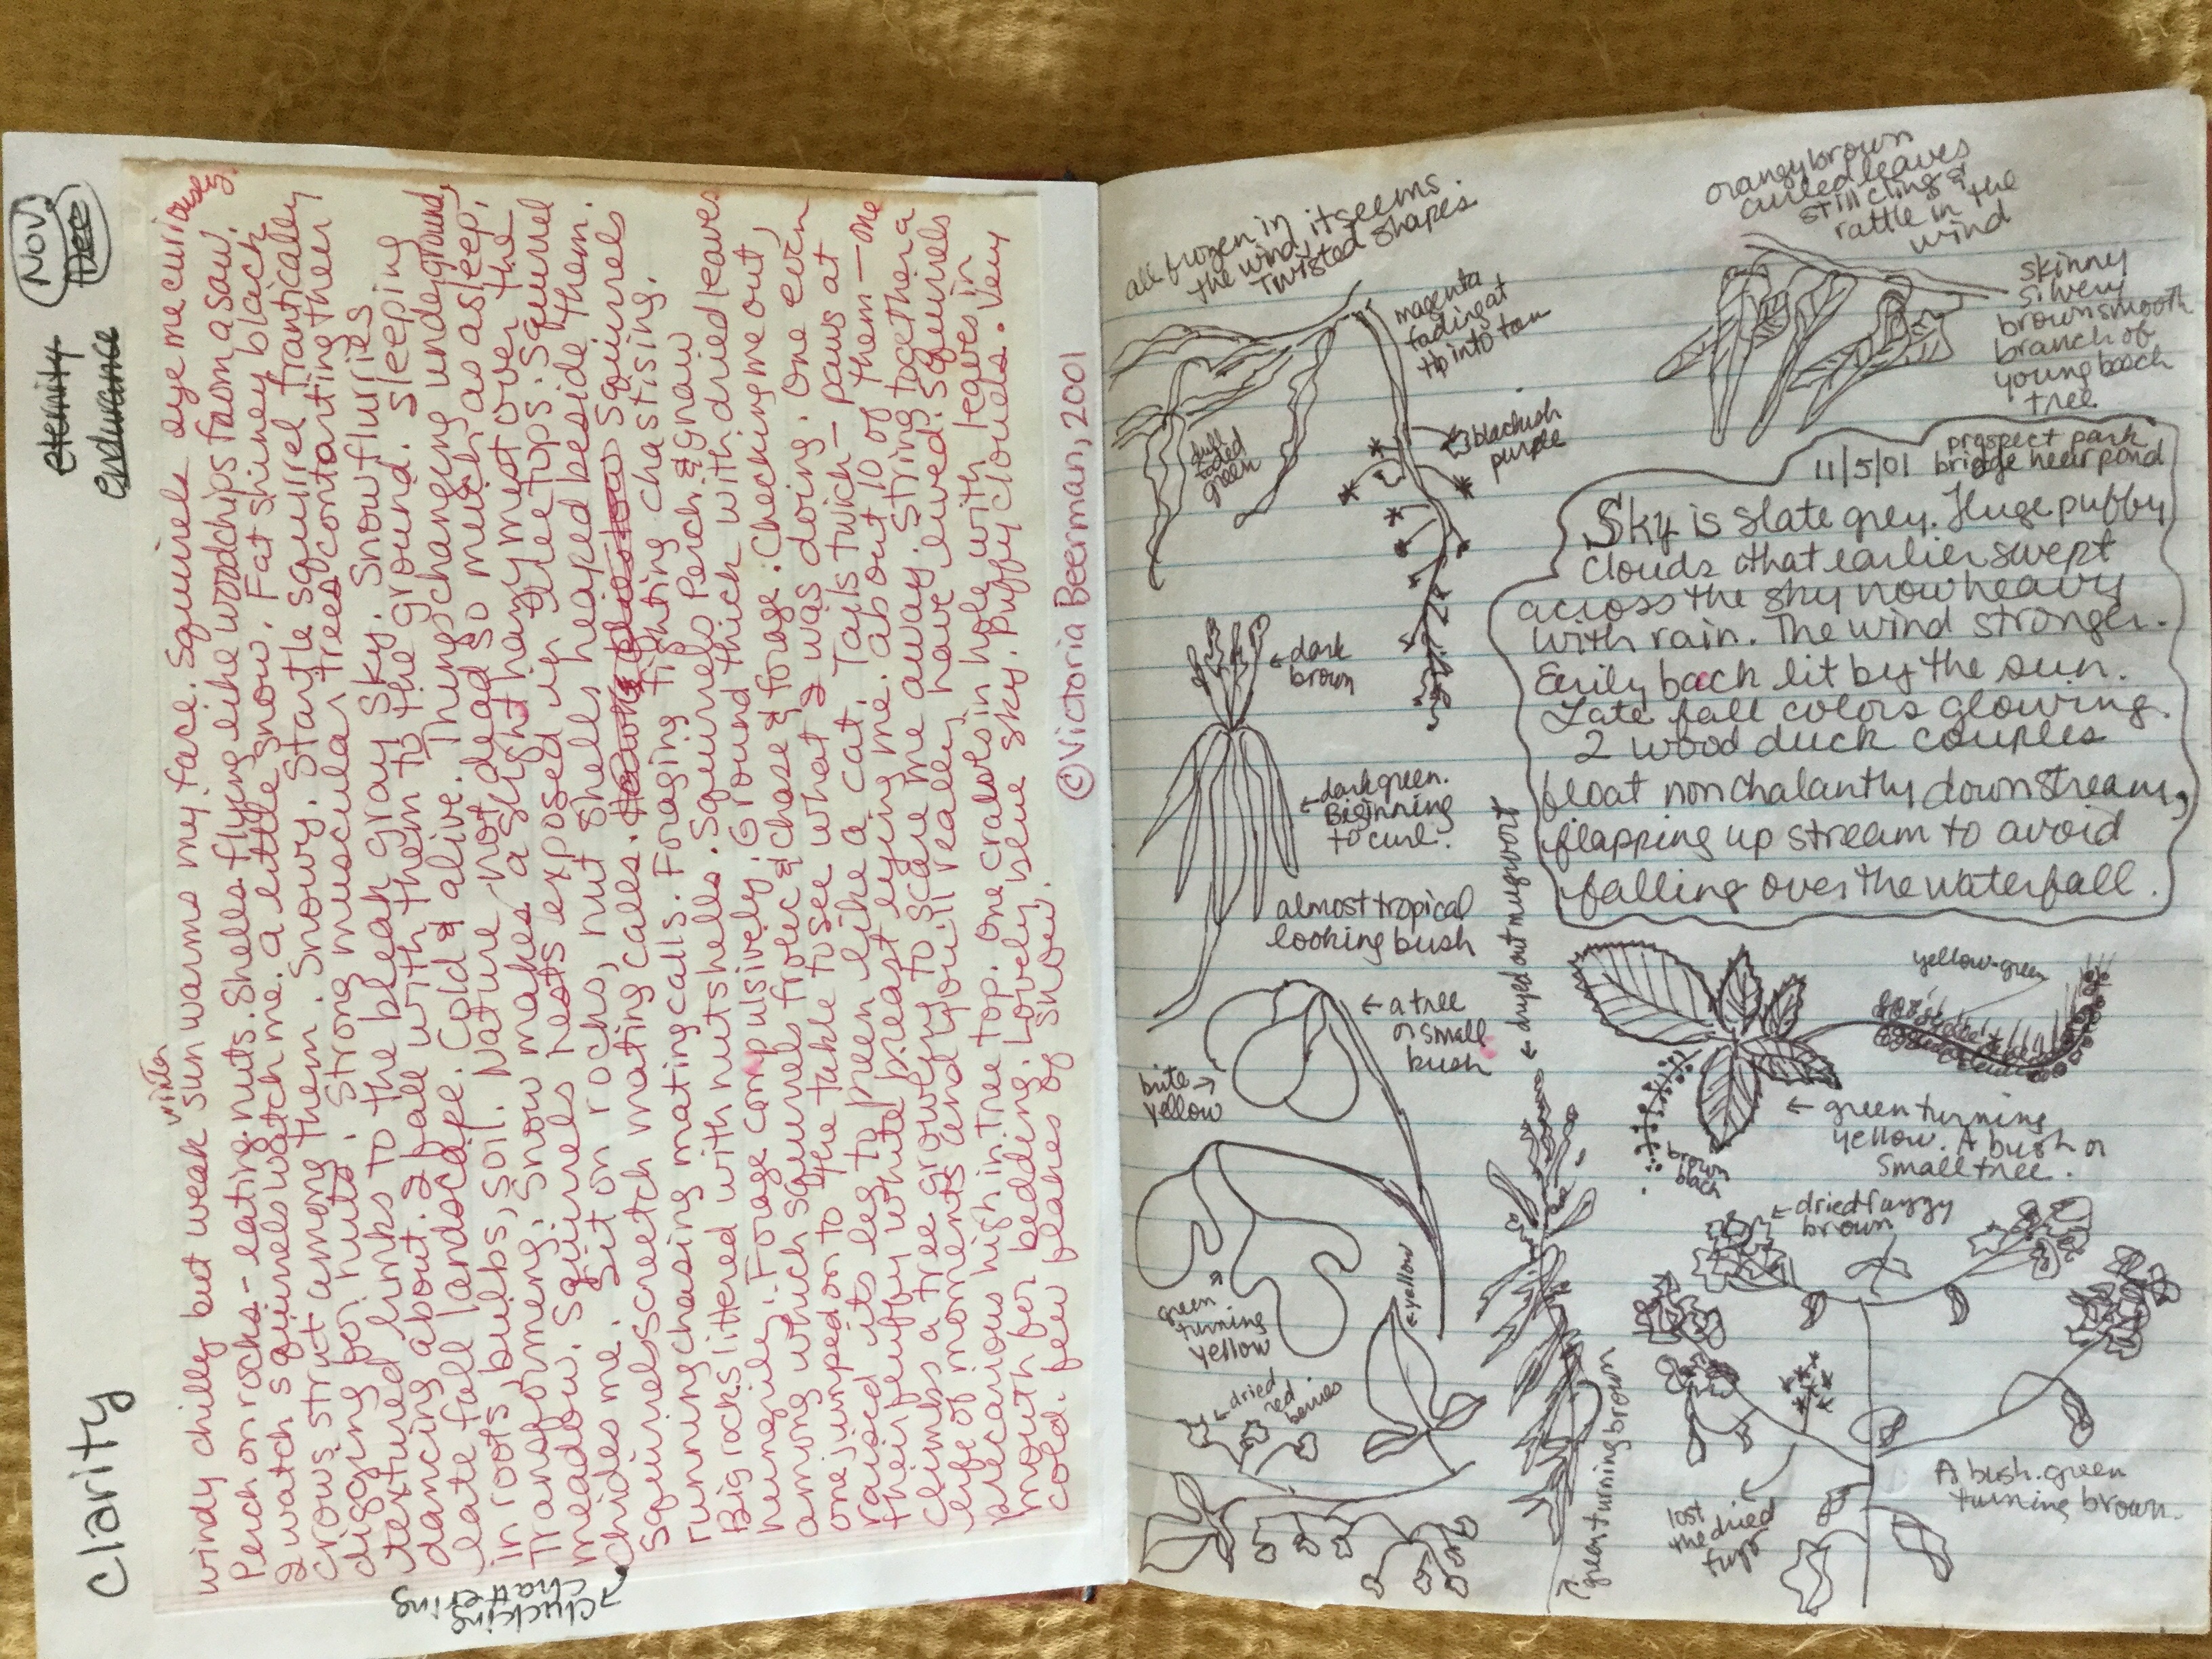 Clarity
eternity
endurance
Nov.
Dec
windy chilly but weak winter sun warms my face. Squirrels eye me curiously.
Perch on rocks - eating nuts. Shells flying like woodchips from a saw.
I watch squirrels watch me. A little snow. Fat shiney black
crows strut among them. Snowy. Startle squirrel frantically
digging for nuts. Strong muscular trees contorting their
textured limbs to the bleak gray sky. Snow flurries
dancing about. I fall with them to the ground. Sleeping
late fall landscape. Cold & alive. Things changing underground,
in roots, bulbs, soil. Nature not dead so much as asleep,
Transforming. Snow makes a slight hazy mist over the
meadow. Squirrels nests exposed in tree tops. Squirrel
chides me. Sit on rocks, nut shells heaped beside them.
Squirrels screetch mating calls. squirrels
running chasing mating calls. Foraging fighting chastising.
Big rocks littered with nutshells. Squirrels Perch & gnaw
hungrily. Forage compulsively. Ground thick with dried leaves
among which squirrels frolic & chase & forage. Checking me out,
one jumped on to the table to see what I was doing. One even
raised its leg to preen like a cat. Tails twich - paws at
their fluffy white breast eying me. About 10 of them - one
climbs a tree growling to scare me away. String together a
life of moments and you'll really have lived. Squirrels
precarious high in tree top. One crawls in hole with leaves in
mouth for bedding. Lovely blue sky. Puffy clouds. Very
cold. few flakes of snow.
clucking
chattering
©Victoria Beerman, 2001
all frozen in it seems.
the wind
Twisted shapes.
magenta
fading at
tip into tan
dull
faded
green
blackish
purple
orangy brown
curled leaves
still cling &
rattle in the
wind
skinny
silvery
brown smooth
branch of
young beech
tree
11/5/01 prospect park
bridge near pond
Sky is slate grey. Huge puffy
clouds that earlier swept
across the sky now heavy
with rain. The wind stronger.
Eerily back lit by the sun.
Late fall colors glowing.
2 wood duck couples
float nonchalantly down stream,
flapping up stream to avoid
falling over the waterfall.
dark
brown
dark green.
Beginning
to curl.
almost tropical
looking bush
a tree
or small
bush
brite
yellow
green
turning
yellow
yellow
dried
red
berries
dryed out mugwort
green turning brown
yellow-green
brown
black
green turning
yellow. A bush or
small tree.
dried fuzzy
brown
lost
the dried
fuzz
A bush. green
turning brown.